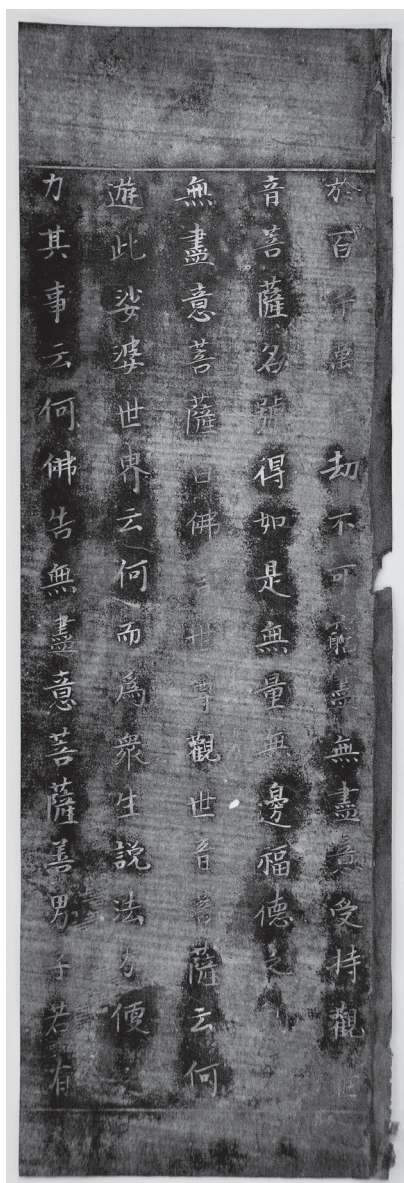 於百千萬劫不可窮盡無盡意受持觀世
音菩薩名號得如是無量無邊福德之利
無盡意菩薩白佛言世尊觀世音菩薩云何
遊此娑婆世界云何而爲衆生説法方便之
力其事云何佛告無盡意菩薩善男子若有